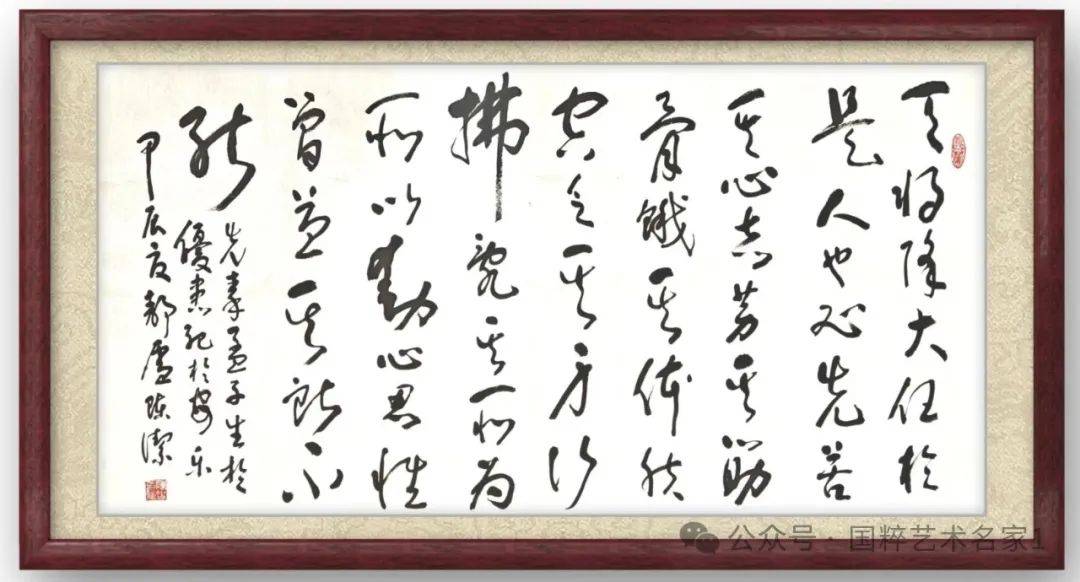 天将降大任於
是人也必先苦
其心志劳其筋
骨饿其体肤
空乏其身行
拂乱其所为
所以動心忍性
曾益其所不
能
先秦孟子生於
優患死於安乐
甲辰夏陈潔
公众号·国粹艺术名家1